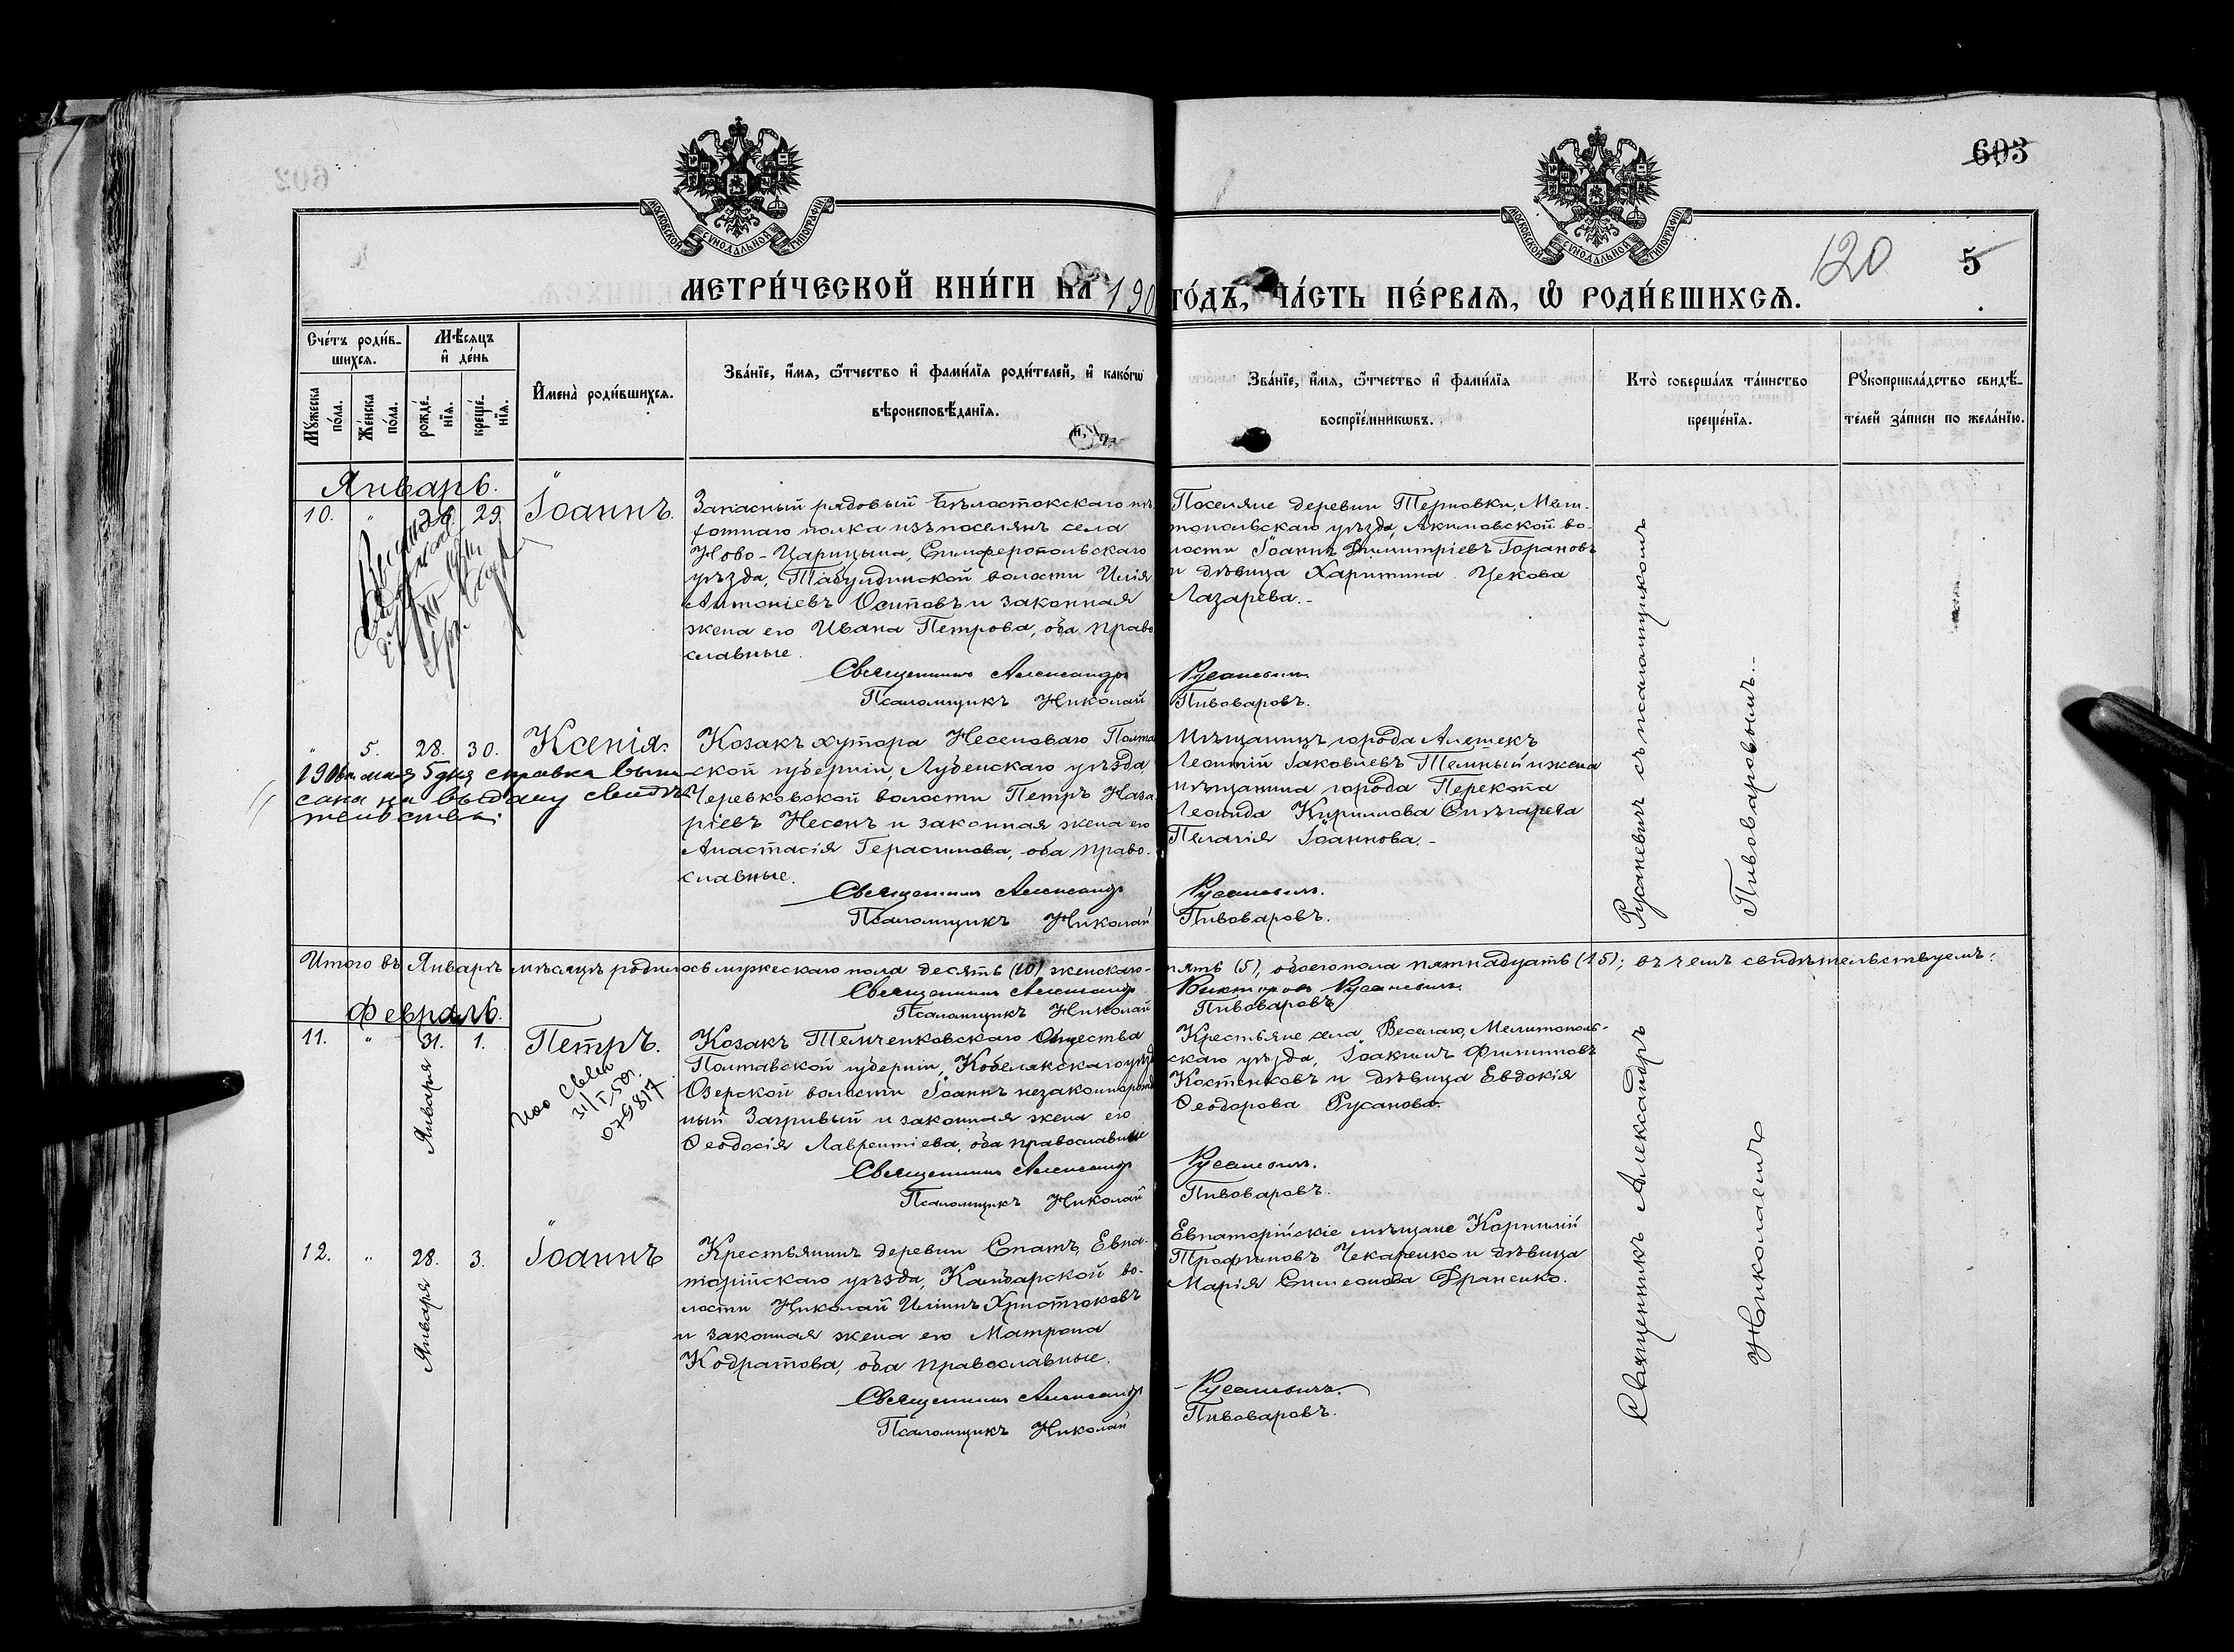 603
МОСКОВСКОЙ СѴНОДАЛЬНОЙ ТИПОГРАФІИ
МОСКОВСКОЙ СѴНОДАЛЬНОЙ ТИПОГРАФІИ
120
5
МЕТРИ́ЧЕСКОЙ КНИ́ГИ НА 190
ГО́ДЪ, ЧА́СТЬ ПЕ́РВАѦ, Ѡ РОДИ́ВШИХСѦ.
Сче́тъ роди́в-
шихсѧ.
Мѣ́сяцъ
и де́нь
Мꙋ́жеска
по́ла.
Же́нска
по́ла.
рожде́-
нїѧ.
креще́-
нїѧ.
Имена̀ роди́вшихсѧ.
Зва́нїе, и́мѧ, ѻ́тчество и фами́лїѧ роди́телей, и како́гѡ
вѣроисповѣ́данїѧ.
Зва́нїе, и́мѧ, ѻ́тчество и фами́лїѧ
воспрїе́мникѡвъ.
Кто̀ соверша́лъ та́инство
креще́нїѧ.
Рꙋкоприкла́дство свидѣ́-
телей за́писи по жела́нїю.
Январь.
10. " 26. 29. Іоаннъ.
Запасный рядовый Бѣлостокскаго пѣ-
хотнаго полка изъ поселянъ села
Ново-Царицына, Симферопольскаго
уѣзда, Табулдинской волости Илія
Антоніевъ Осиповъ и законная
жена его Ивана Петрова, оба право
славные.
Священникъ Александръ
Псаломщикъ Николай
Поселяне деревни Терновки, Мели-
топольскаго уѣзда, Акимовской во-
лости Іоаннъ Димитріевъ Горановъ
и дѣвица Харитина Чекова
Лазарева.-
Русаневичъ
Пивоваровъ.
" 5. 28. 30. Ксенія.
мая 5 дня справка выпи-
сана на выдачу свидѣ-
тельства.
Козакъ хутора Несеноваго Полта
ской губерніи, Лубенскаго уѣзда,
Черевковской волости Петръ Наза
ріевъ Несенъ и законная жена его
Анастасія Герасимова, оба право-
славные.
Священникъ Александръ
Псаломщикъ Николай
Мѣщанинъ города Алешекъ
Леонтій Іаковлевъ Темный и жена
мѣщанина города Перекопа
Леонида Кириллова Снѣгарева
Пелагія Іоаннова.-
Русаневичъ.
Пивоваровъ.
Русаневичъ съ псаломщикомъ
Пивоваровымъ.-
Итого въ Январѣ мѣсяцѣ родилось мужескаго пола десять (10), женскаго-
пять (5), обоего пола пятнадцать (15); въ чемъ свидѣтельствуемъ:
Священникъ Александръ
Викторовъ Русаневичъ.
Псаломщикъ Николай
Пивоваровъ
Февраль.
11. " 31. 1. Петръ.
Января
31/I-50г.
Козакъ Темченковскаго Общества
Полтавской губерніи, Кобелякскаго уѣзда
Озерской волости Іоаннъ незаконнорожд
ный Загривый и законная жена его
Ѳеодосія Лаврентіева, оба православные
Священникъ Александръ
Псаломщикъ Николай
Крестьяне села Веселаго, Мелитополь-
скаго уѣзда, Іоакимъ Филипповъ
Костенковъ и дѣвица Евдокія
Ѳеодорова Русанова.
Русаневичъ.
Пивоваровъ.
12. " 28. 3. Іоаннъ
Января
Крестьянинъ деревни Спатъ, Евпа-
торійскаго уѣзда, Камбарской во-
лости Николай Иліинъ Христюковъ
и законная жена его Матрона
Кодратова, оба православные.
Священникъ Александръ
Псаломщикъ Николай
Евпаторійскіе мѣщане Корнилій
Трофимовъ Чекаренко и дѣвица
Марія Симеонова Драненко.
Русаневичъ.
Пивоваровъ.
Священникъ Александръ
Николаемъ